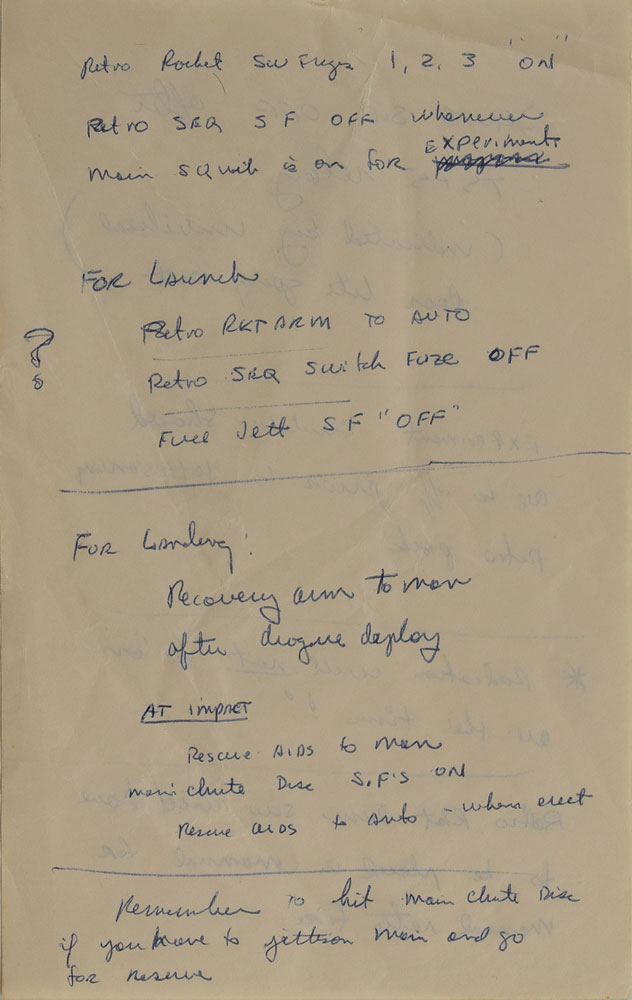 Retro Rocket Sw Fuzes 1, 2, 3 "ON"
Retro SEQ S F OFF whenever
main squib is on for EXPeriments
FOR LAunch
?
Retro RKT ARM TO AUTO
Retro SEQ Switch FUZE OFF
Fuel Jett S F "OFF"
FOR Landing:
Recovery arm To man
after drogue deploy
AT impact
Rescue AIDS to man
main chute Disc S.F's ON
Rescue AIDS to Auto - when erect
Remember TO hit main chute Disc
if you have to jettison main and go
for reserve